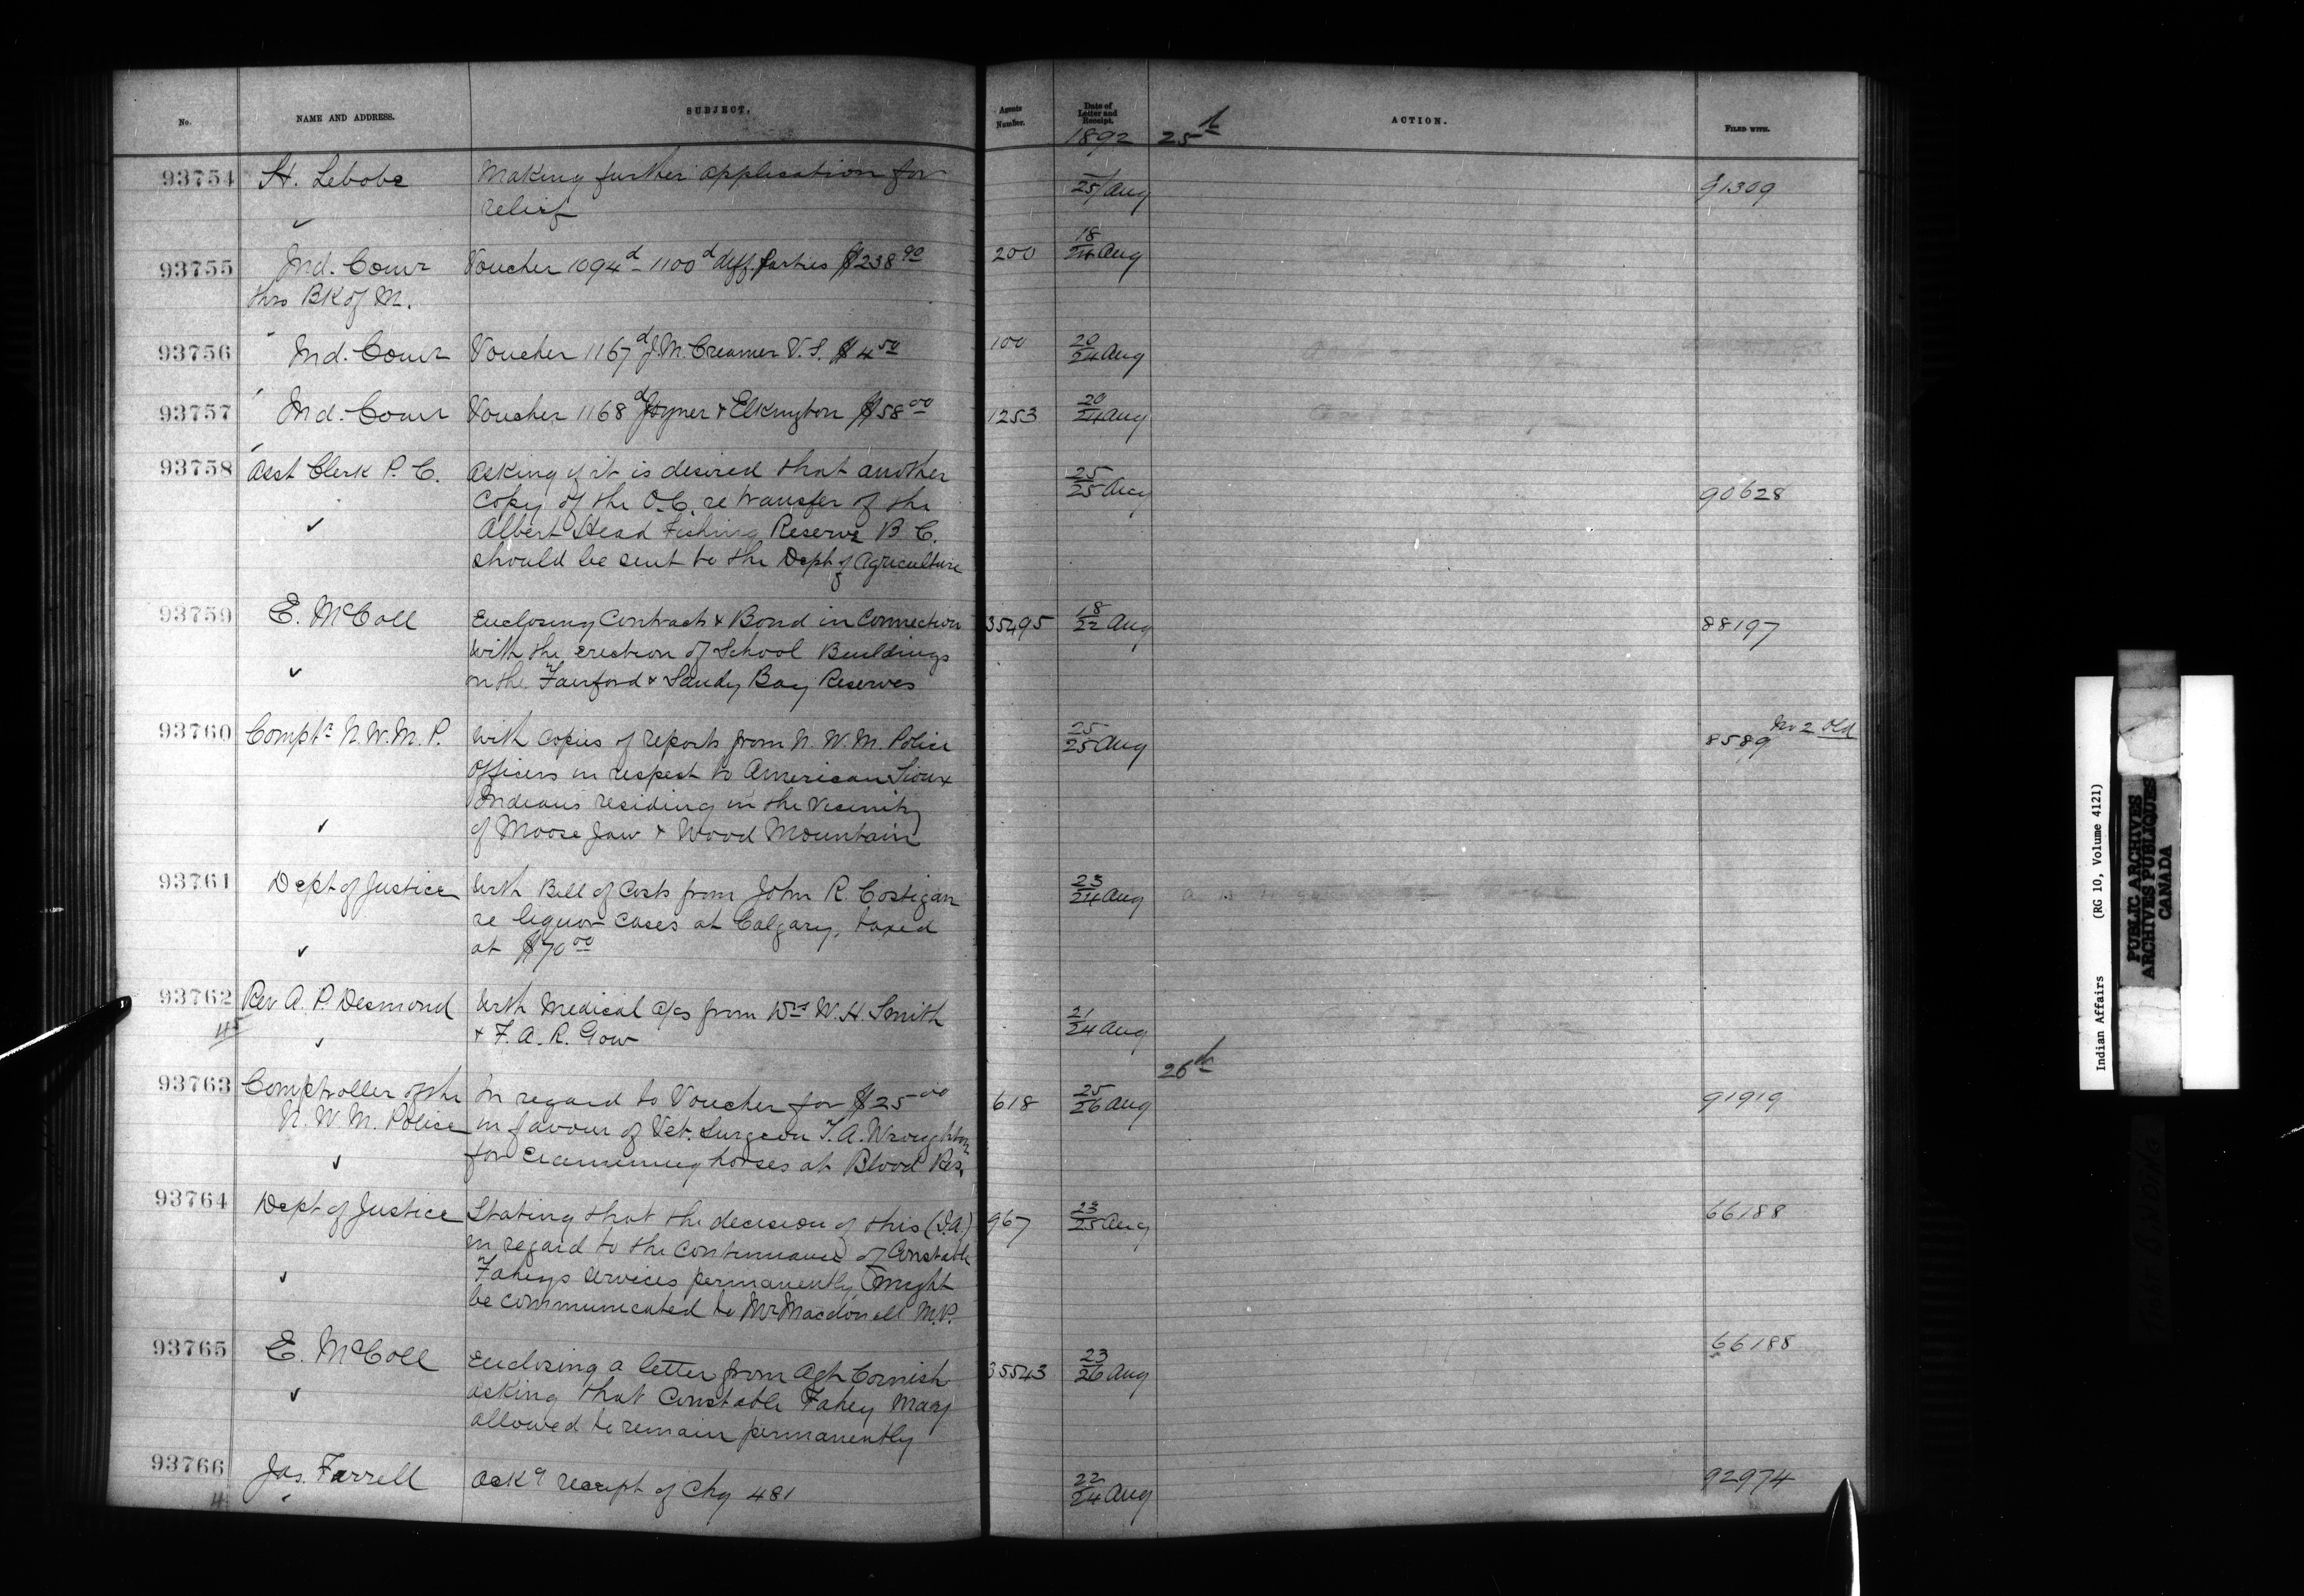 No. NAME AND ADDRESS. SUBJECT. Agents Number. Date of Letter and Receipt. ACTION. FILED WITH.
1892 25th
93754 St. Lebobe Making further application for 25/Aug 91309
relief
93755 Ind. Comr Voucher 1094d - 1100d diff. Parties $238.90 200 18/24 Aug
thro BK of M.
93756 Ind. Comr Voucher 1167d J.W. Creamer V.S. $4.50 100 20/24 Aug
93757 Ind. Comr Voucher 1168d Joyner & Elkington $58.00 1253 20/24 Aug
93758 Asst Clerk P. C. Asking if it is desired that another 25/25 Aug 90628
Copy of the O.C. re transfer of the
Albert Head Fishing Reserve B C.
should be sent to the Dept of Agriculture
93759 E. McColl Enclosing Contracts & Bond in Connection 35495 18/22 Aug 88197
with the erection of School Buildings
on the Fairford & Sandy Bay Reserves
93760 Comptr N.W.M.P. With Copies of reports from N. W. M. Police 25/25 Aug 8589 No 2 Old
Officers in respect to American Sioux
Indians residing in the vicinity
of Moose Jaw & Wood Mountain
93761 Dept of Justice With Bill of Costs from John R. Costigan 23/24 Aug
re liquor cases at Calgary, taxed
at $70.00
93762 Rev A. P. Desmond With Medical a/cs from Drs W. H. Smith 21/24 Aug
4 & F. A. R. Gow
26th
93763 Comptroller of the In regard to Voucher for $25.00 618 25/26 Aug 91919
N. W. M. Police in favour of Vet. Surgeon T. A. Wroughton
for examining horses at Blood Res.
93764 Dept of Justice Stating that the decision of this (I.A.) 967 23/25 Aug 66188
in regard to the continuance of Constable
Faheys services permanently might
be communicated to Mr Macdonell M.P.
93765 E. McColl Enclosing a letter from Agt Cornish 35543 23/26 Aug 66188
asking that Constable Fahey may
allowed to remain permanently
93766 Jas. Farrell Ackg receipt of Chq 481 22/24 Aug 92974
4
Indian Affairs (RG 10, Volume 4121)
PUBLIC ARCHIVES
ARCHIVES PUBLIQUES
CANADA